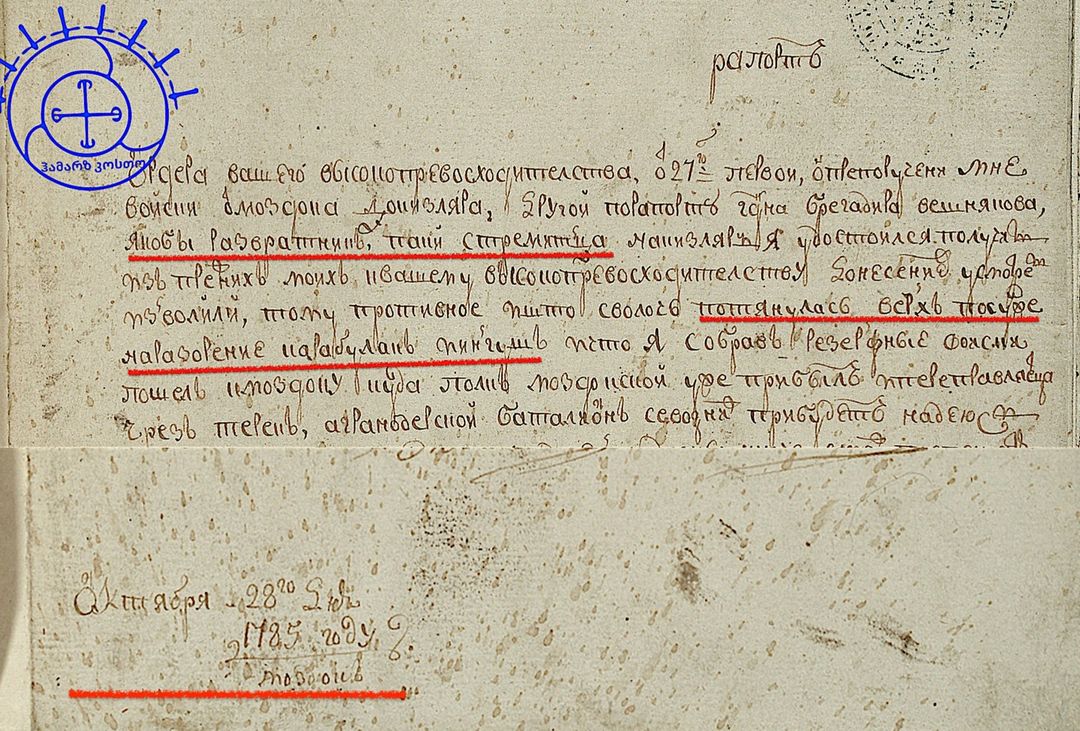 рапортъ
ჰამარზ კოსთო
Ордера вашего высокопревосходителства, 27го первой, о препоручени мне
войски моздока кизляра, другой порапортъ гдна брегадира вешнякова,
якобы развратникъ, паки стремитца накизляръ я удостоился получать
изъ прежнихъ моихъ квашему высокопревосходителству донесение усмотреть
изволили, тому противное ишто сволочь потянулась верхъ посунже
наразорение карабулакъ ингушъ ичто я собравъ резерфные
пошелъ кмоздоку куда полкъ моздокской уже прибылъ ипереправляеца
чрезъ терекъ, астраханской баталионъ севодни прибудетъ надеюсь
Октября 28го дня
1785 году
моздокъ